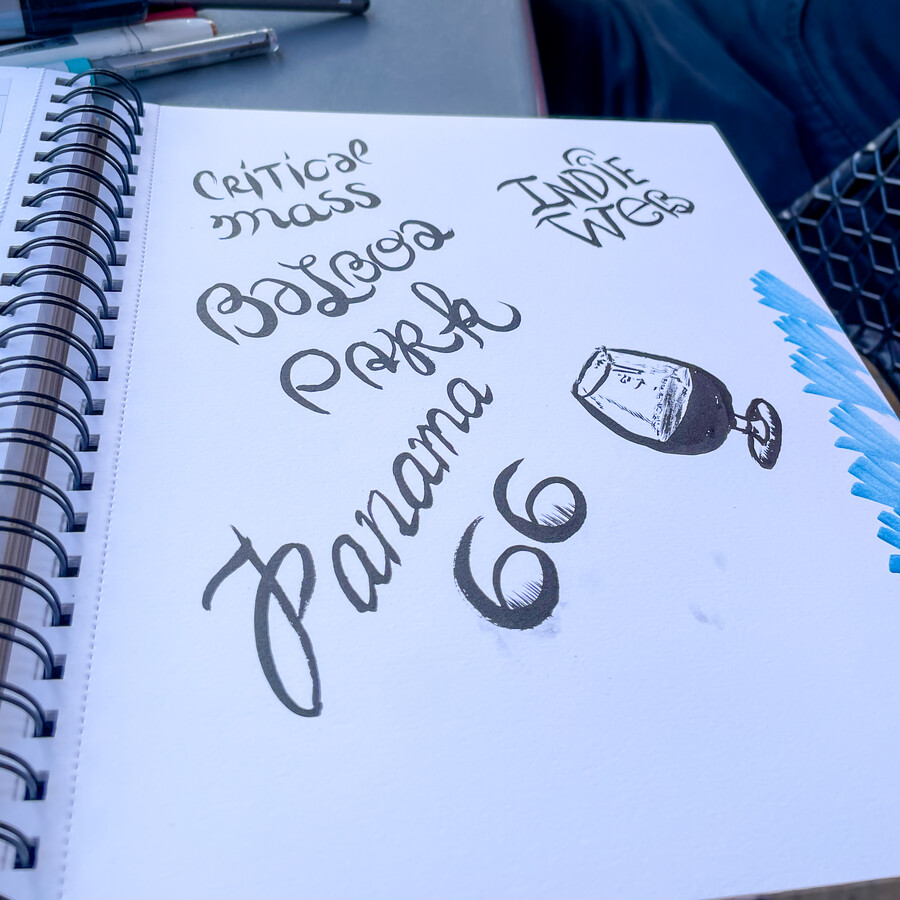 Critical
mass
Balboa
Park
Panama
66
Indie
Web